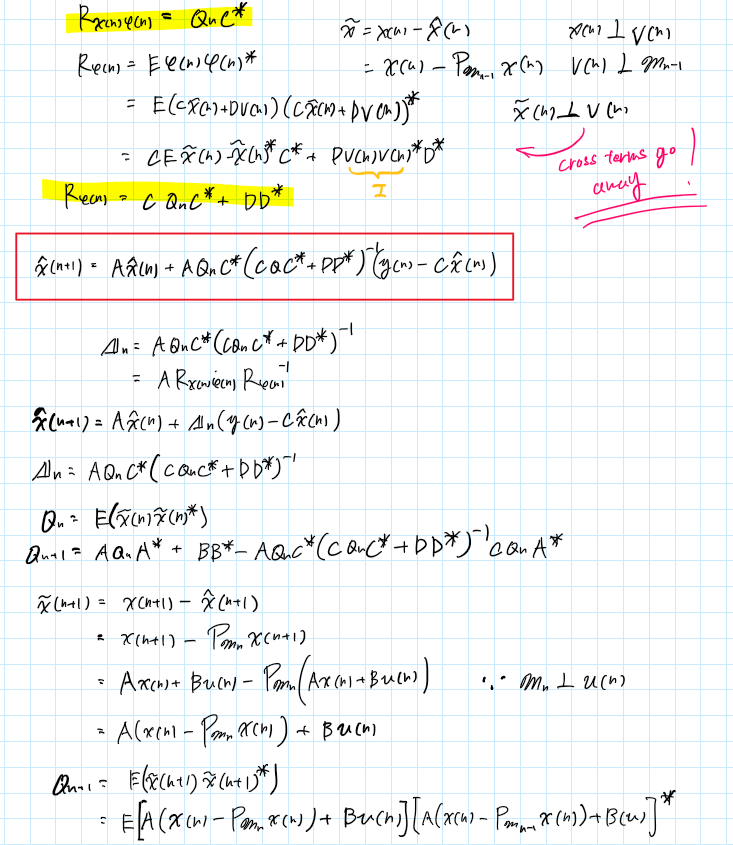 R_{x(n)φ(n)} = Q_n C*
x̃ = x(n) - x̂(n)    x(n) ⊥ v(n)
R_{φ(n)} = E φ(n) φ(n)*
= x(n) - P_{m_{n-1}} x(n)    v(n) ⊥ m_{n-1}
= E(Cx̃(n) + Dv(n))(Cx̃(n) + Dv(n))*
x̃(n) ⊥ v(n)
= C E x̃(n) x̃(n)* C* + D v(n) v(n)* D*
I
cross terms go away!
R_{φ(n)} = C Q_n C* + DD*
x̂(n+1) = A x̂(n) + A Q_n C* (CQC* + DD*)^{-1} (y(n) - C x̂(n))
Λ_n = A Q_n C* (C Q_n C* + DD*)^{-1}
= A R_{x(n)φ(n)} R_{φ(n)}^{-1}
x̂(n+1) = A x̂(n) + Λ_n (y(n) - C x̂(n))
Λ_n = A Q_n C* (C Q_n C* + DD*)^{-1}
Q_n = E(x̃(n) x̃(n)*)
Q_{n+1} = A Q_n A* + BB* - A Q_n C* (C Q_n C* + DD*)^{-1} C Q_n A*
x̃(n+1) = x(n+1) - x̂(n+1)
= x(n+1) - P_{m_n} x(n+1)
= A x(n) + B u(n) - P_{m_n} (A x(n) + B u(n))    ∵ m_n ⊥ u(n)
= A(x(n) - P_{m_n} x(n)) + B u(n)
Q_{n+1} = E(x̃(n+1) x̃(n+1)*)
= E[A(x(n) - P_{m_n} x(n)) + B u(n)][A(x(n) - P_{m_{n-1}} x(n)) + B(u)]*